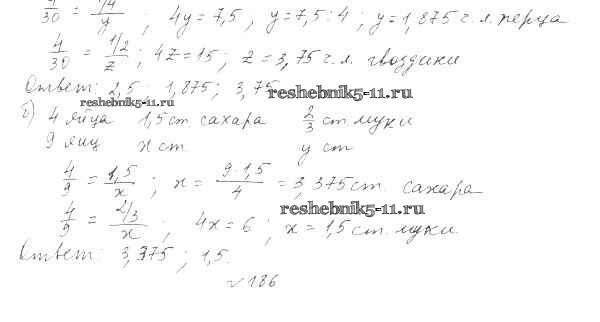 4/30 = 1/4/y ; 4y = 7,5 , y = 7,5 : 4 ; y = 1,875 ч.л. перца
4/30 = 1/2/z ; 4z = 15 ; z = 3,75 ч.л. гвоздики
Ответ: 2,5 ; 1,875 ; 3,75
reshebnik5-11.ru
reshebnik5-11.ru
б) 4 яйца 1,5 ст сахара 2/3 ст муки
9 яиц x ст y ст
4/9 = 1,5/x ; x = 9·1,5/4 = 3,375 ст. сахара
reshebnik5-11.ru
4/9 = 2/3/x ; 4x = 6 ; x = 1,5 ст. муки
Ответ: 3,375 ; 1,5.
√186